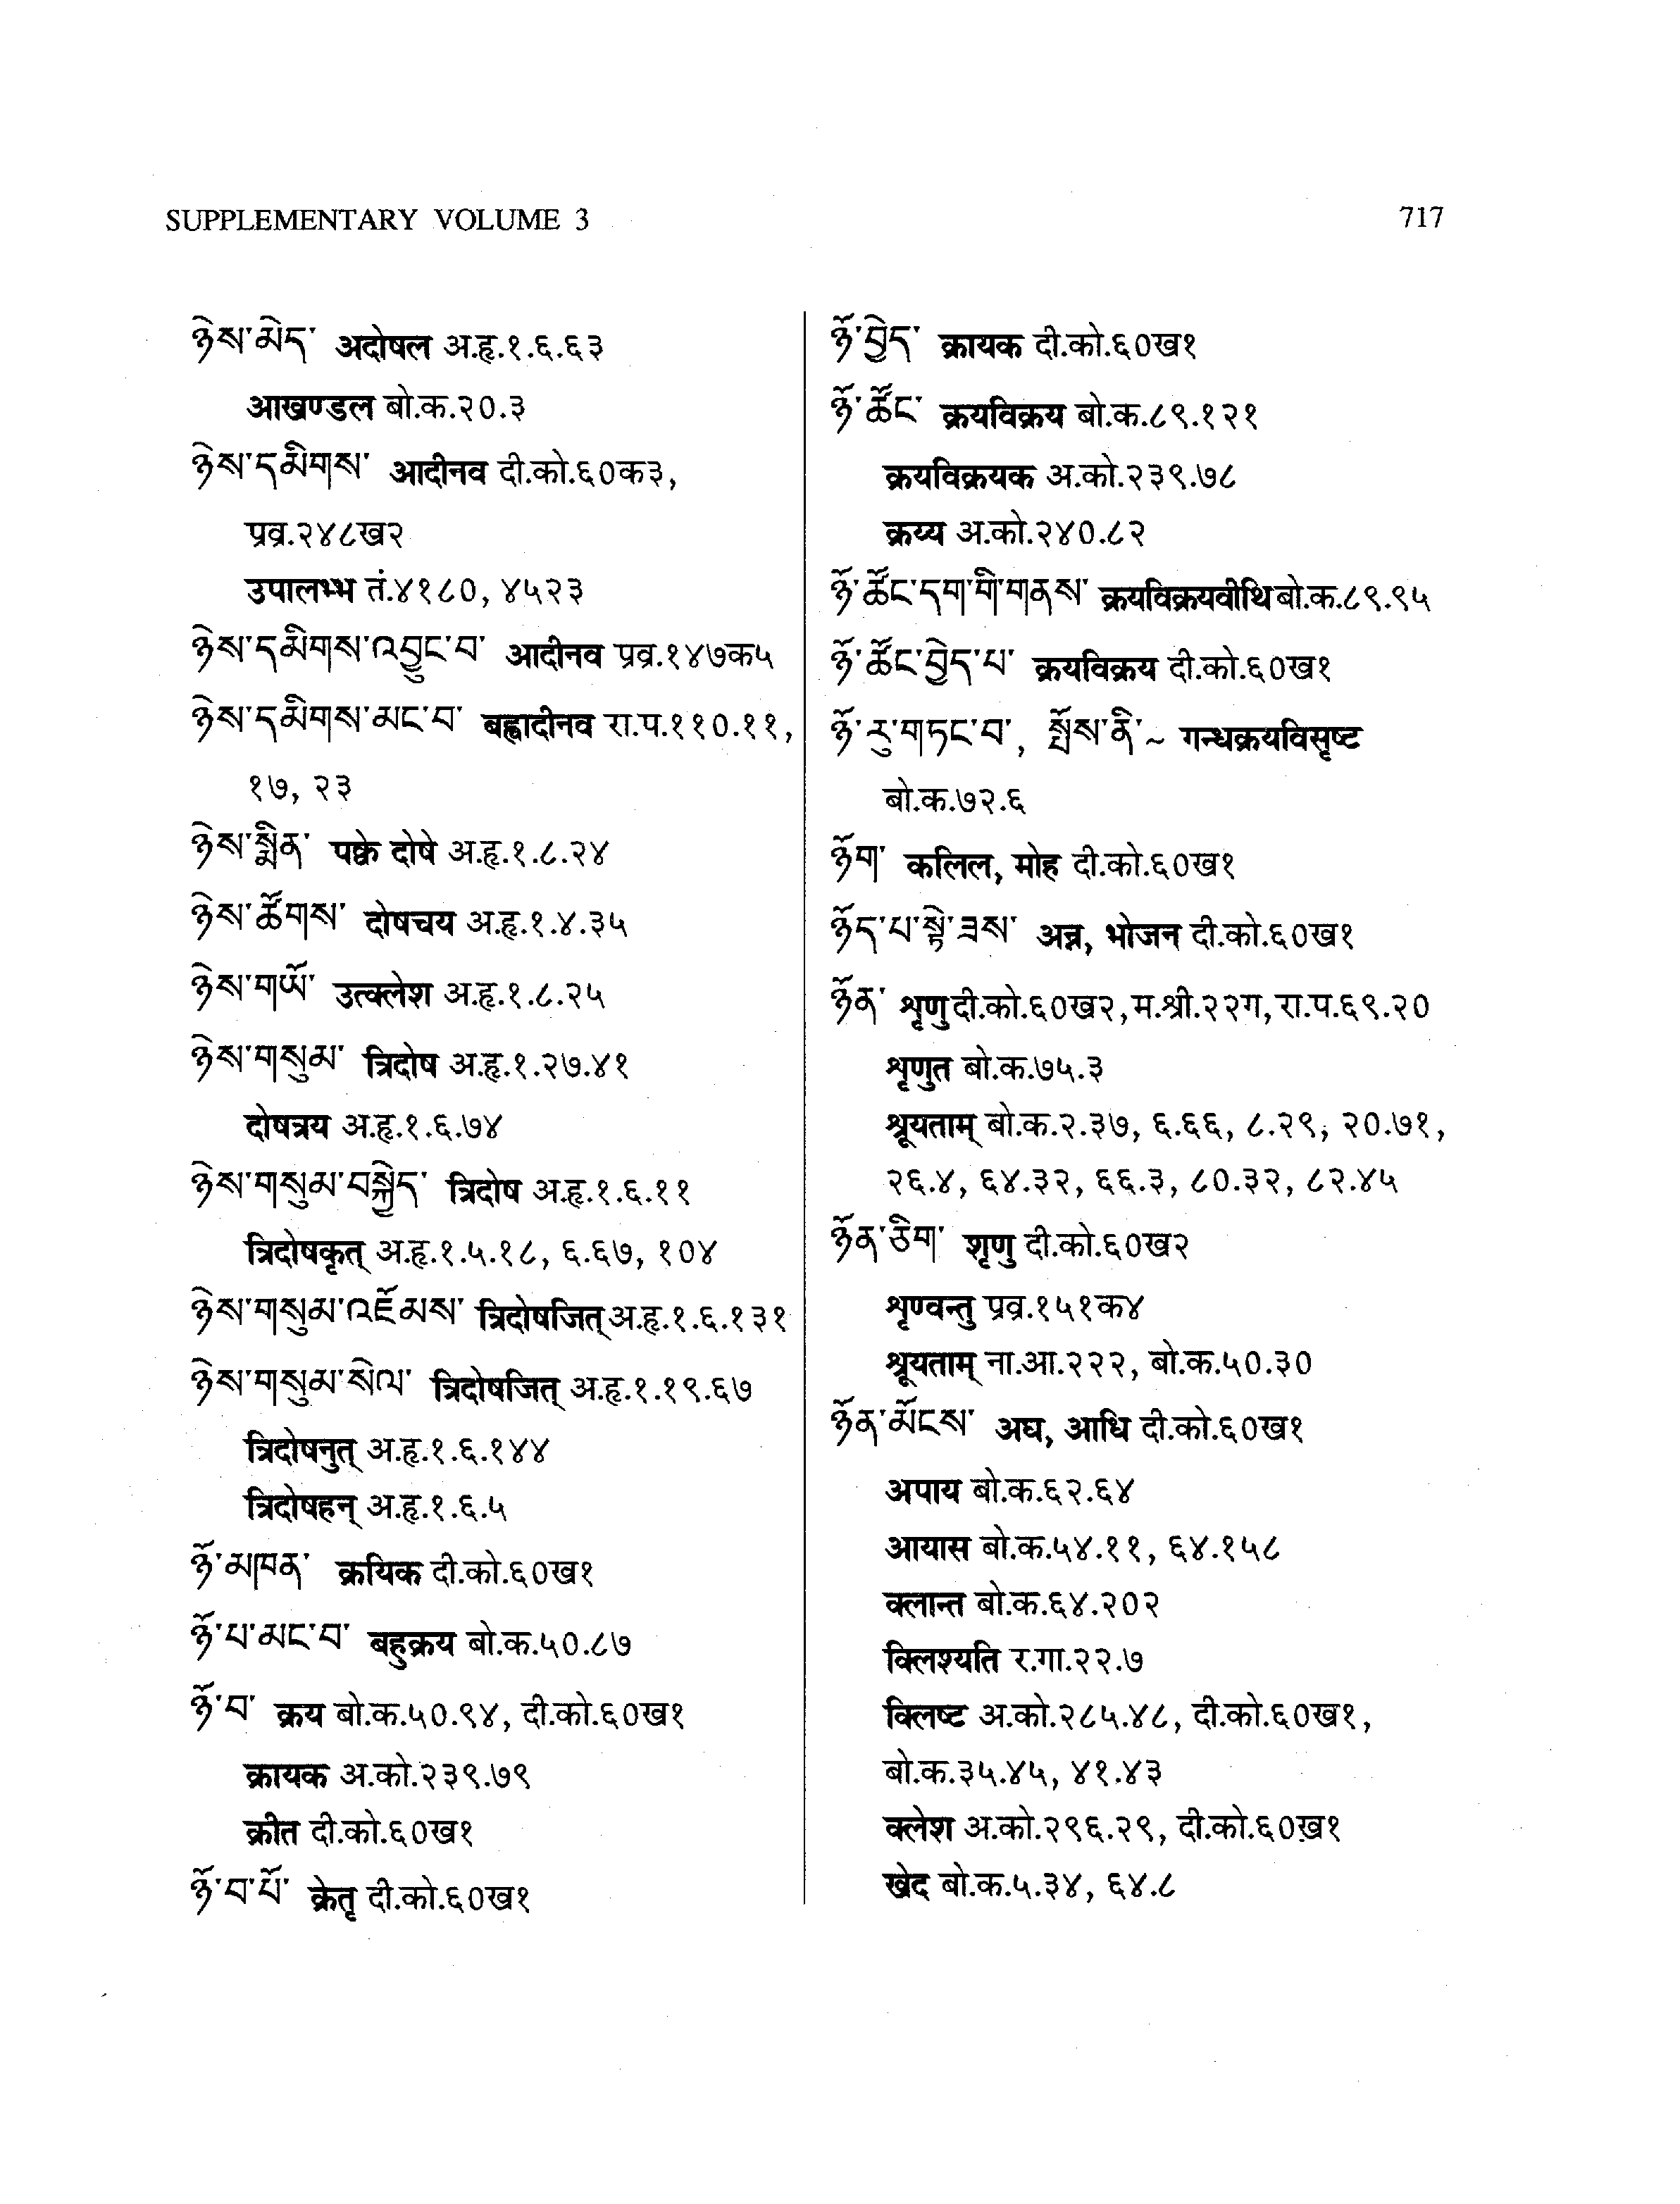 SUPPLEMENTARY VOLUME 3
717
ཉེས་མེད་ अदोषल अ.हृ.१.६.६३
आखण्डल बो.क.२०.३
ཉེས་དམིགས་ आदीनव दी.को.६०क३,
प्रव्र.२४८ख२
उपालम्भ तं.४१८०, ४५२३
ཉེས་དམིགས་འབྱུང་བ་ आदीनव प्रव्र.१४७क५
ཉེས་དམིགས་མང་བ་ बह्वादीनव रा.प.११०.११,
१७, २३
ཉེས་སྨིན་ पक्वे दोषे अ.हृ.१.८.२४
ཉེས་ཚོགས་ दोषचय अ.हृ.१.४.३५
ཉེས་གཡོ་ उत्क्लेश अ.हृ.१.८.२५
ཉེས་གསུམ་ त्रिदोष अ.हृ.१.२७.४१
दोषत्रय अ.हृ.१.६.७४
ཉེས་གསུམ་བསྐྱེད་ त्रिदोष अ.हृ.१.६.११
त्रिदोषकृत् अ.हृ.१.५.१८, ६.६७, १०४
ཉེས་གསུམ་འཇོམས་ त्रिदोषजित् अ.हृ.१.६.१३१
ཉེས་གསུམ་སེལ་ त्रिदोषजित् अ.हृ.१.१९.६७
त्रिदोषनुत् अ.हृ.१.६.१४४
त्रिदोषहन् अ.हृ.१.६.५
ཉོ་མཁན་ क्रयिक दी.को.६०ख१
ཉོ་པ་མང་བ་ बहुक्रय बो.क.५०.८७
ཉོ་བ་ क्रय बो.क.५०.९४, दी.को.६०ख१
क्रायक अ.को.२३९.७९
क्रीत दी.को.६०ख१
ཉོ་བ་པོ་ क्रेतृ दी.को.६०ख१
ཉོ་བྱེད་ क्रायक दी.को.६०ख१
ཉོ་ཚོང་ क्रयविक्रय बो.क.८९.१२१
क्रयविक्रयक अ.को.२३९.७८
क्रय्य अ.को.२४०.८२
ཉོ་ཚོང་དག་གི་གནས་ क्रयविक्रयवीथि बो.क.८९.९५
ཉོ་ཚོང་བྱེད་པ་ क्रयविक्रय दी.को.६०ख१
ཉོ་རུ་གཏང་བ་, སྤོས་ནི་~ गन्धक्रयविसृष्ट
बो.क.७२.६
ཉོག་ कलिल, मोह दी.को.६०ख१
ཉོད་པ་སྟེ་ཟས་ अन्न, भोजन दी.को.६०ख१
ཉོན་ शृणु दी.को.६०ख२, म.श्री.२२ग, रा.प.६९.२०
शृणुत बो.क.७५.३
श्रूयताम् बो.क.२.३७, ६.६६, ८.२९, २०.७१,
२६.४, ६४.३२, ६६.३, ८०.३२, ८२.४५
ཉོན་ཅིག་ शृणु दी.को.६०ख२
शृण्वन्तु प्रव्र.१५१क४
श्रूयताम् ना.आ.२२२, बो.क.५०.३०
ཉོན་མོངས་ अघ, आधि दी.को.६०ख१
अपाय बो.क.६२.६४
आयास बो.क.५४.११, ६४.१५८
क्लान्त बो.क.६४.२०२
क्लिश्यति र.गा.२२.७
क्लिष्ट अ.को.२८५.४८, दी.को.६०ख१,
बो.क.३५.४५, ४१.४३
क्लेश अ.को.२९६.२९, दी.को.६०ख१
खेद बो.क.५.३४, ६४.८